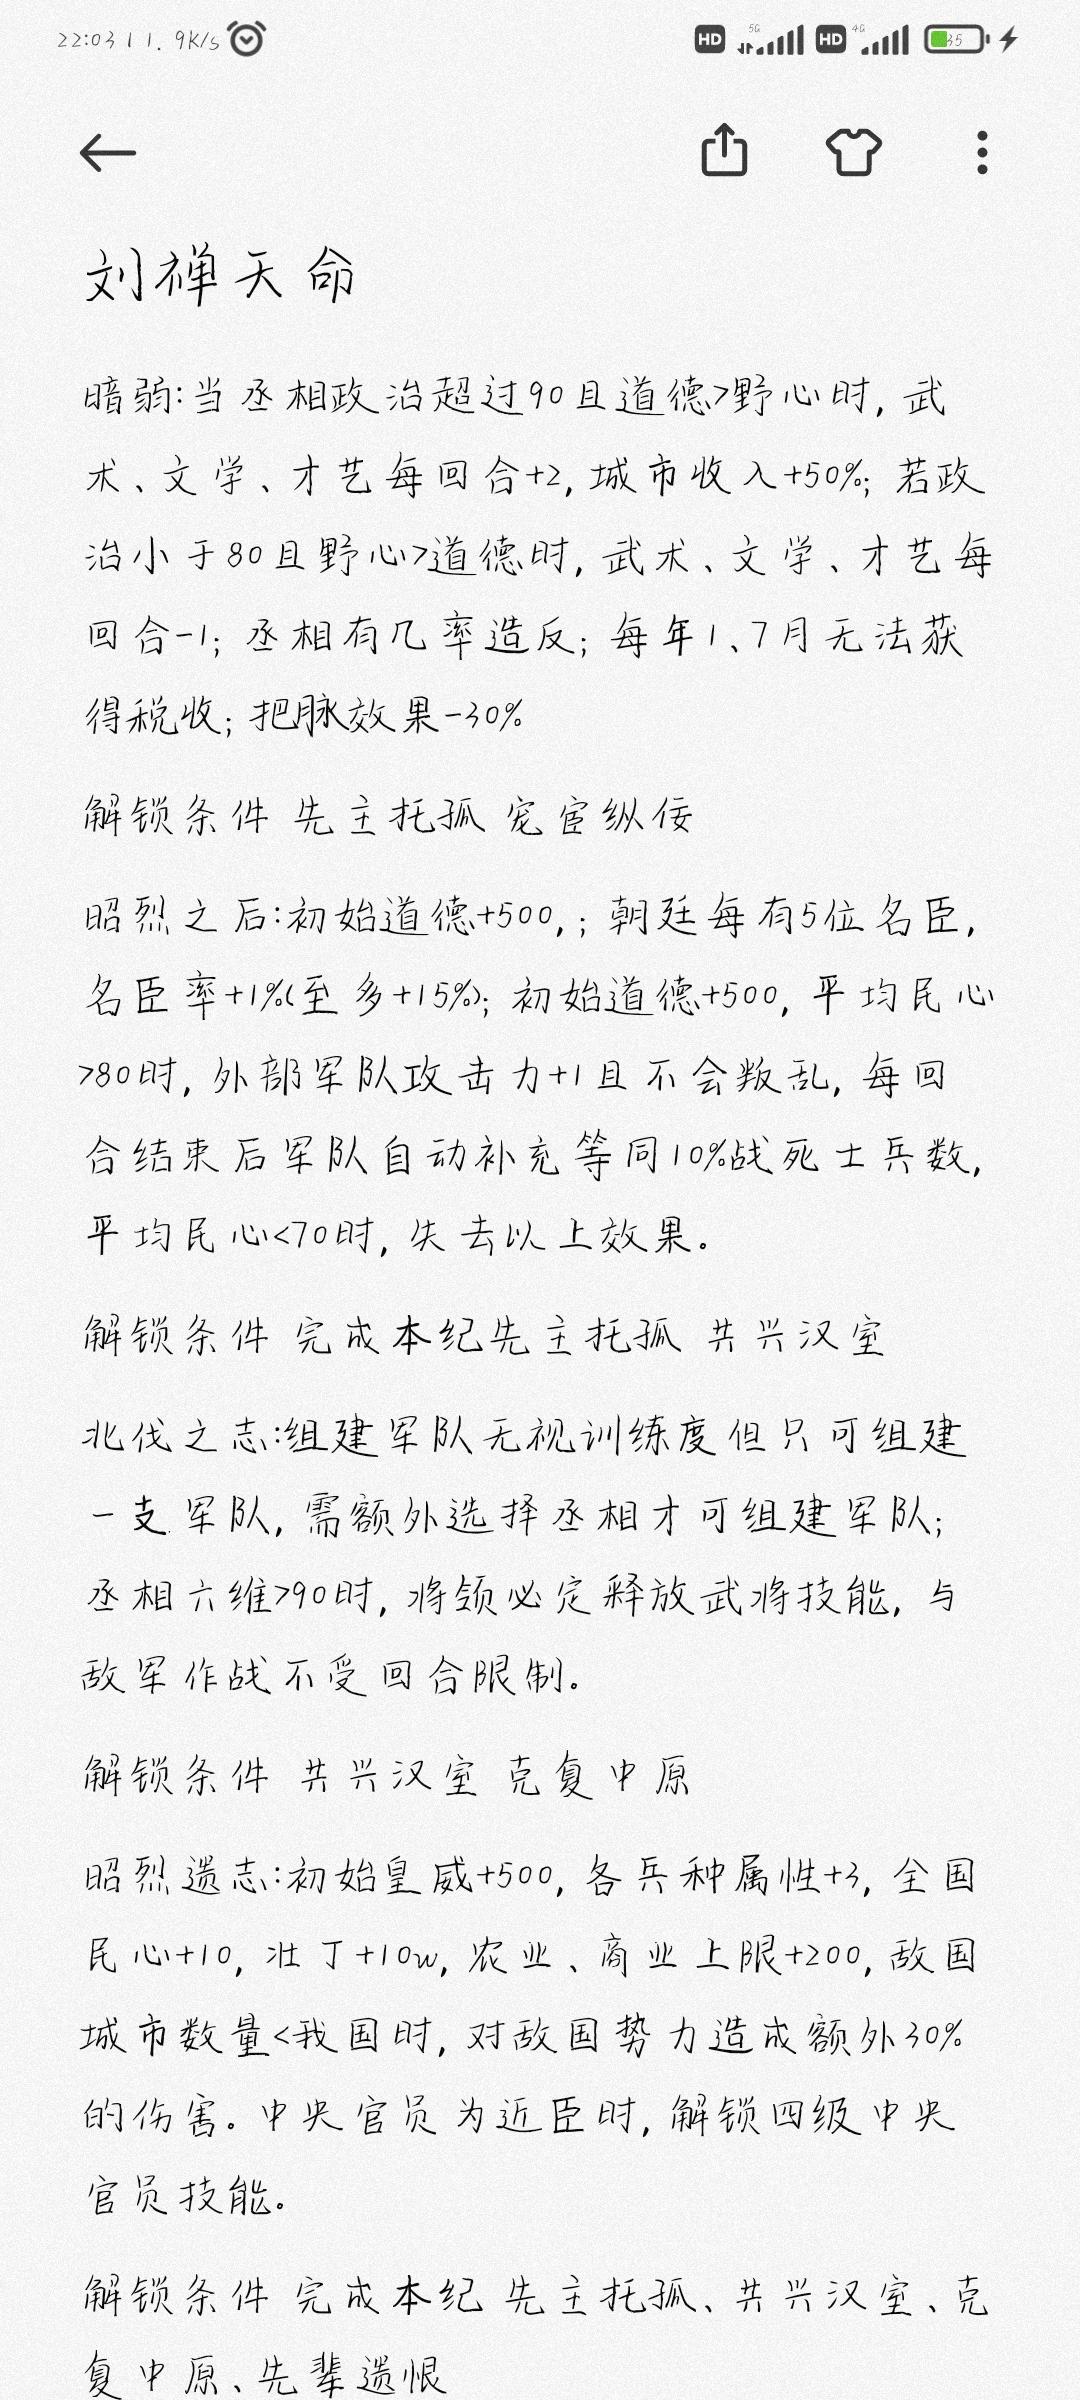 22:03 | 1.9K/s HD 5G HD 4G 35
刘禅天命
暗弱:当丞相政治超过90且道德>野心时, 武
术、文学、才艺每回合+2, 城市收入+50%; 若政
治小于80且野心>道德时, 武术、文学、才艺每
回合-1; 丞相有几率造反; 每年1、7月无法获
得税收; 把脉效果-30%
解锁条件 先主托孤 宠宦纵佞
昭烈之后:初始道德+500, ; 朝廷每有5位名臣,
名臣率+1%(至多+15%); 初始道德+500, 平均民心
>80时, 外部军队攻击力+1且不会叛乱, 每回
合结束后军队自动补充等同10%战死士兵数,
平均民心<70时, 失去以上效果。
解锁条件 完成本纪先主托孤 共兴汉室
北伐之志:组建军队无视训练度但只可组建
一支军队, 需额外选择丞相才可组建军队;
丞相六维>90时, 将领必定释放武将技能, 与
敌军作战不受回合限制。
解锁条件 共兴汉室 克复中原
昭烈遗志:初始皇威+500, 各兵种属性+3, 全国
民心+10, 壮丁+10w, 农业、商业上限+200, 敌国
城市数量<我国时, 对敌国势力造成额外30%
的伤害。中央官员为近臣时, 解锁四级中央
官员技能。
解锁条件 完成本纪 先主托孤、共兴汉室、克
复中原、先辈遗恨